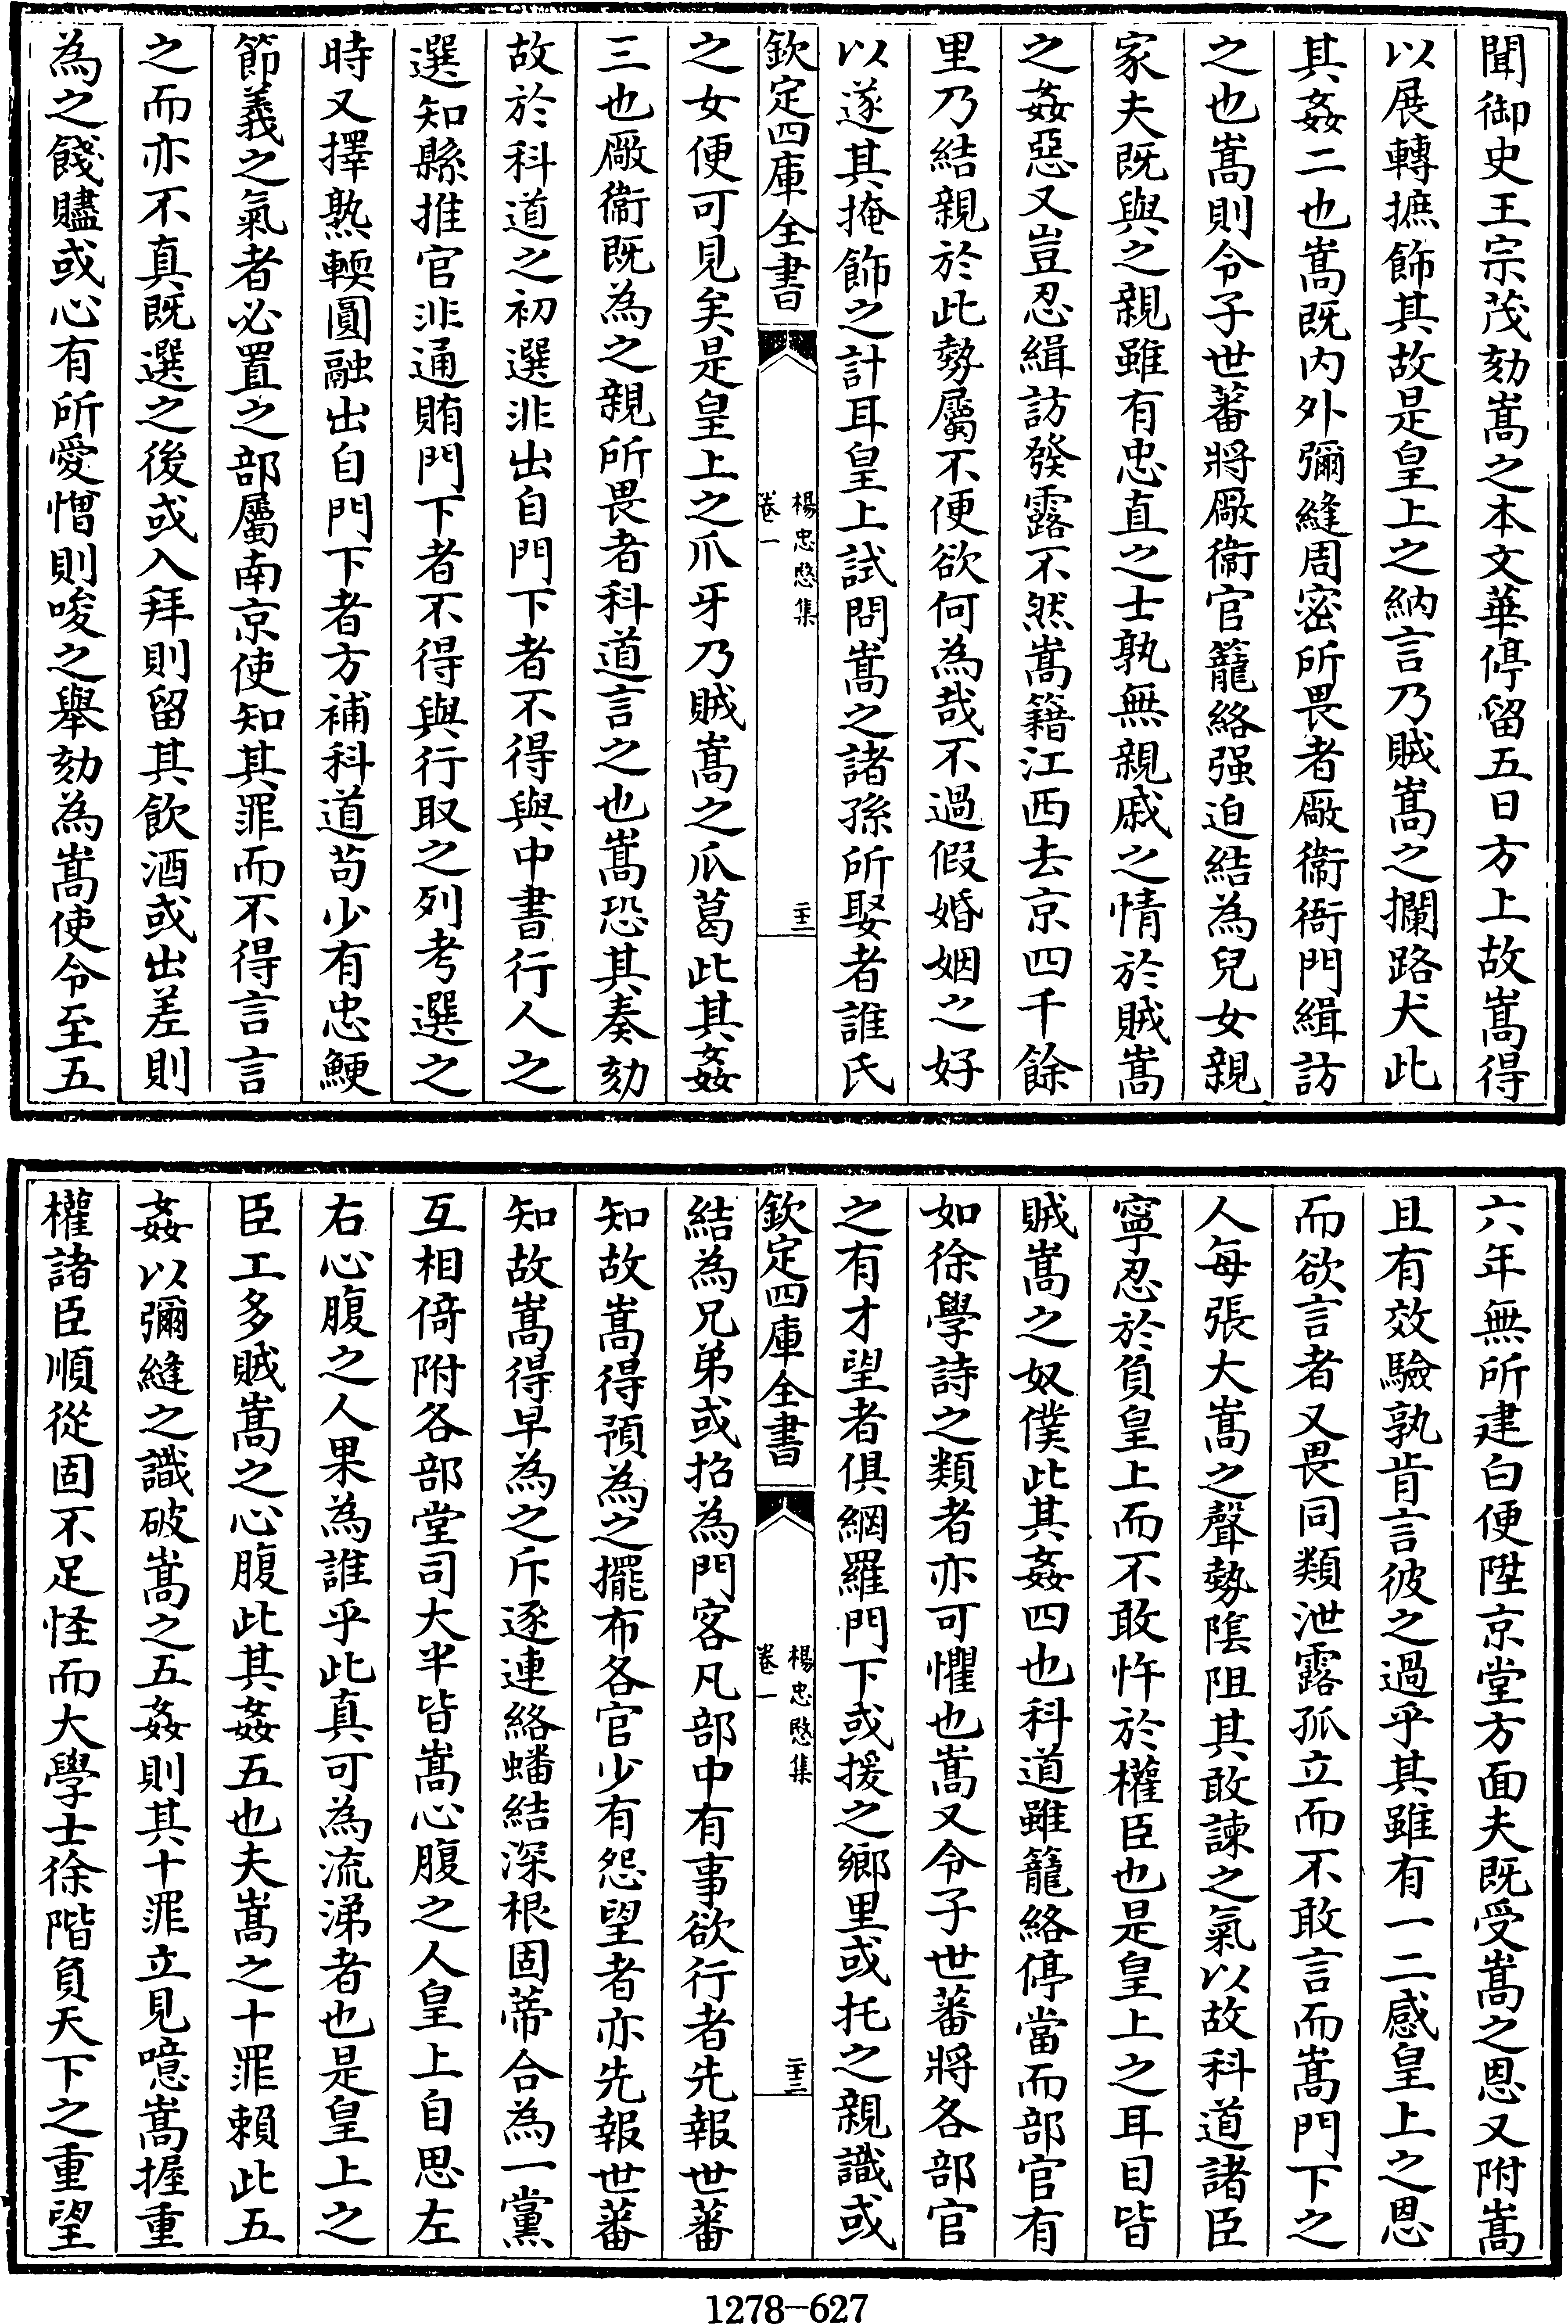 聞御史王宗茂劾嵩之本文華停留五日方上故嵩得
以展轉摭飾其故是皇上之納言乃賊嵩之攔路犬此
其姦二也嵩既内外彌縫周密所畏者厰衞衙門緝訪
之也嵩則令子世蕃將厰衞官籠絡强迫結為兒女親
家夫既與之親雖有忠直之士孰無親戚之情於賊嵩
之姦惡又豈忍緝訪發露不然嵩籍江西去京四千餘
里乃結親於此勢屬不便欲何為哉不過假婚姻之好
以遂其掩飾之計耳皇上試問嵩之諸孫所娶者誰氏
欽定四庫全書
楊忠愍集
卷一
二十二
之女便可見矣是皇上之爪牙乃賊嵩之瓜葛此其姦
三也厰衞既為之親所畏者科道言之也嵩恐其奏劾
故於科道之初選非出自門下者不得與中書行人之
選知縣推官非通賄門下者不得與行取之列考選之
時又擇熟輭圓融出自門下者方補科道苟少有忠鯁
節義之氣者必置之部屬南京使知其罪而不得言言
之而亦不真既選之後或入拜則留其飲酒或出差則
為之餞贐或心有所愛憎則唆之舉劾為嵩使令至五
六年無所建白便陞京堂方面夫既受嵩之恩又附嵩
且有效驗孰肯言彼之過乎其雖有一二感皇上之恩
而欲言者又畏同類泄露孤立而不敢言而嵩門下之
人每張大嵩之聲勢隂阻其敢諫之氣以故科道諸臣
寧忍於負皇上而不敢忤於權臣也是皇上之耳目皆
賊嵩之奴僕此其姦四也科道雖籠絡停當而部官有
如徐學詩之類者亦可懼也嵩又令子世蕃將各部官
之有才望者俱網羅門下或援之鄉里或托之親識或
欽定四庫全書
楊忠愍集
卷一
二十三
結為兄弟或招為門客凡部中有事欲行者先報世蕃
知故嵩得預為之擺布各官少有怨望者亦先報世蕃
知故嵩得早為之斥逐連絡蟠結深根固蒂合為一黨
互相倚附各部堂司大半皆嵩心腹之人皇上自思左
右心腹之人果為誰乎此真可為流涕者也是皇上之
臣工多賊嵩之心腹此其姦五也夫嵩之十罪賴此五
姦以彌縫之識破嵩之五姦則其十罪立見噫嵩握重
權諸臣順從固不足怪而大學士徐階負天下之重望
1278—627